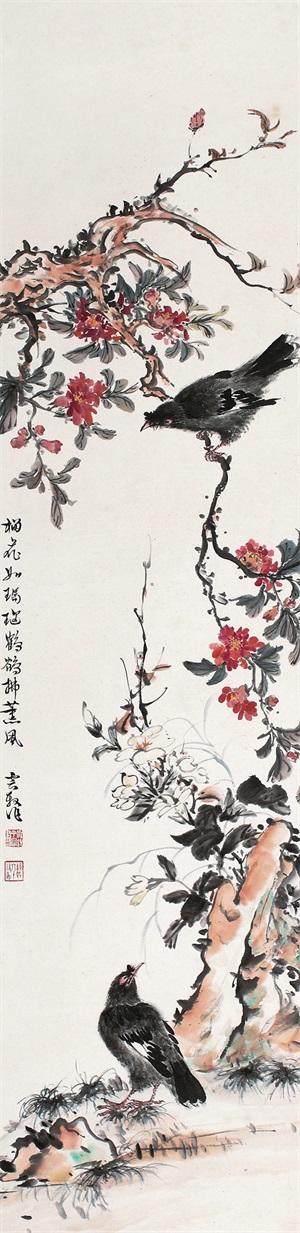 榴花如瑪瑙鸜鵒拂薰風